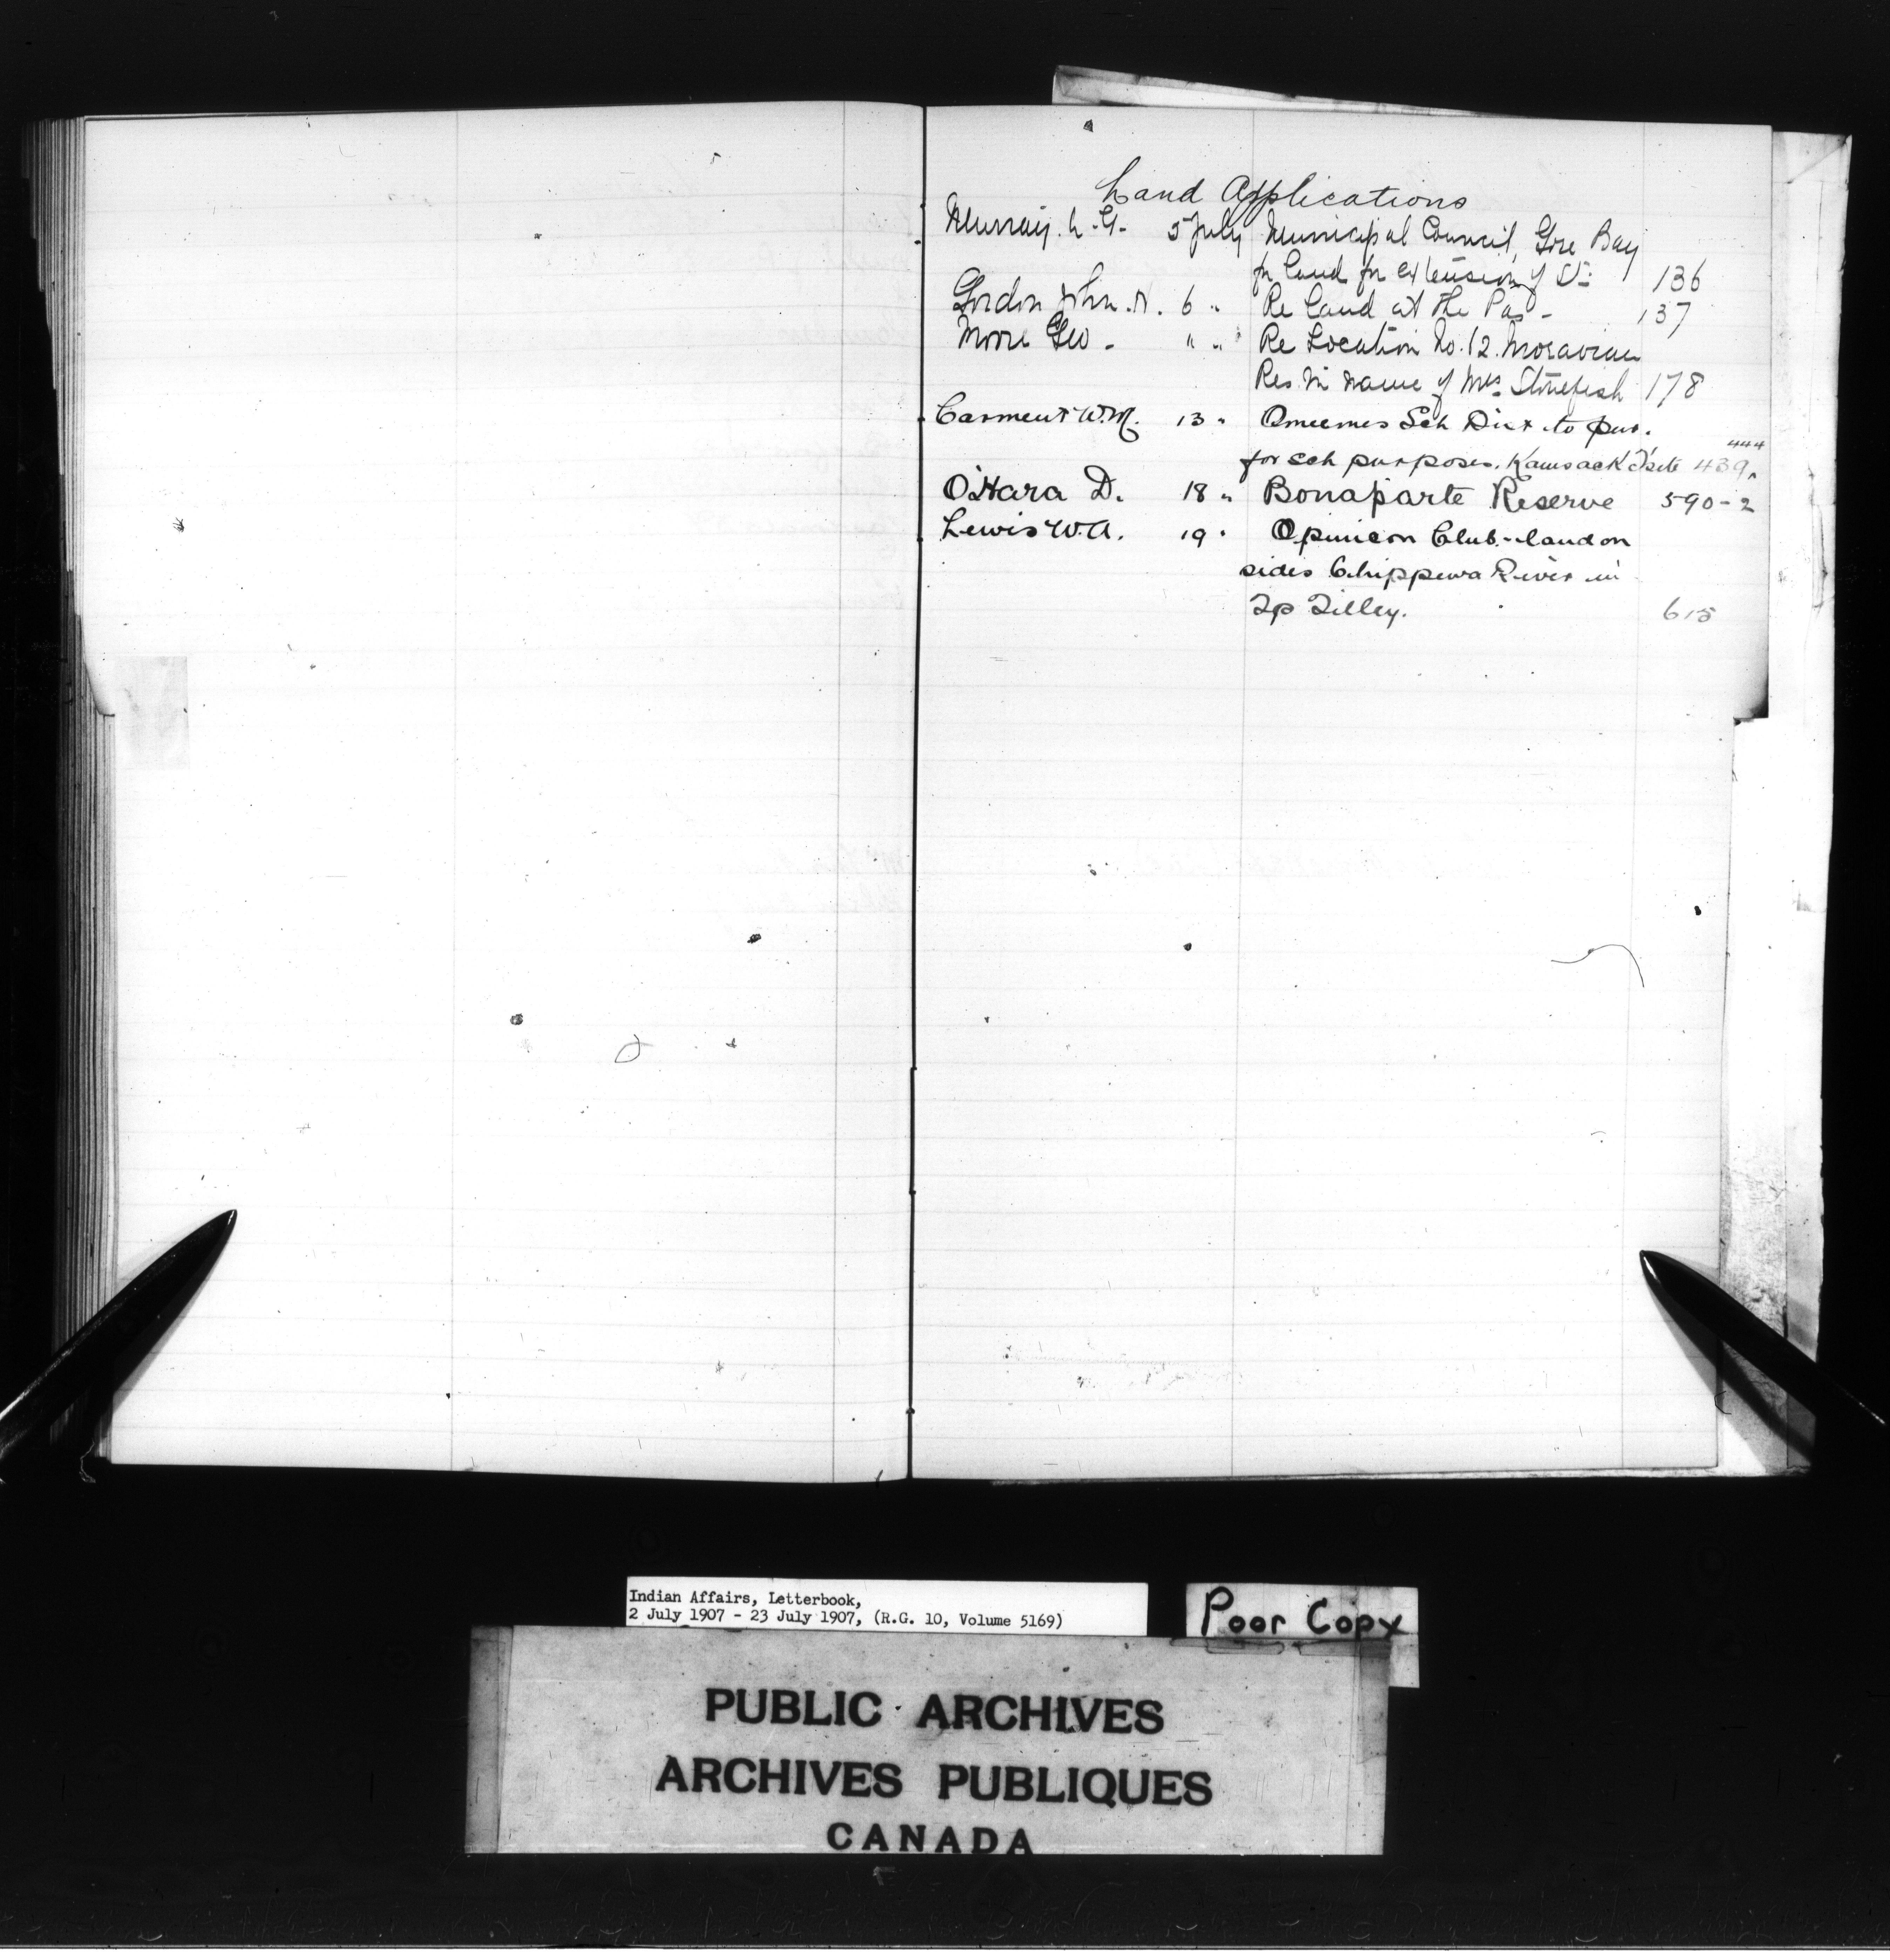 Land Applications
Murray. 5 July Municipal Council, Gore Bay
for land for extension of St. 136
Gordon John. 6 " Re land at the Pas - 137
Moore Geo - " " Re Location No. 12. Moravian
Res. in name of Mrs. Stonefish 178
Carment W.M. 13 " Sch Dist to pur.
444
for sch purposes. Kamsack T'site 439
O'Hara D. 18 " Bonaparte Reserve 590-2
Lewis W.A. 19 " Opinicon Club - land on
sides Chippewa River in
Tp Tilley. 615
Indian Affairs, Letterbook,
2 July 1907 - 23 July 1907, (R.G. 10, Volume 5169)
Poor Copy
PUBLIC ARCHIVES
ARCHIVES PUBLIQUES
CANADA